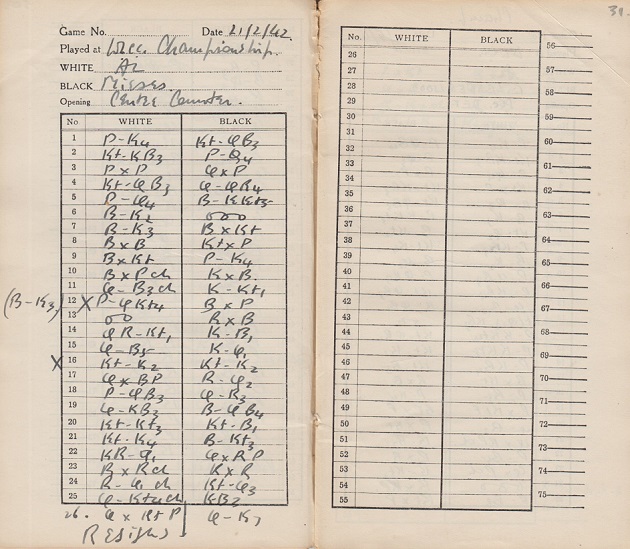 Game No. Date 21/2/42.
Played at Championship.
WHITE
BLACK Mieses.
Opening Centre Counter.
No. WHITE BLACK
1 P-K4 Kt-QB3
2 Kt-KB3 P-Q4
3 P x P Q x P
4 Kt-QB3 Q-QR4
5 P-Q4 B-KKt5
6 B-K2 ooo
7 B-K3 B x Kt
8 B x B Kt x P
9 B x Kt P-K4
10 B x P ch K x B.
11 Q-B3 ch K-Kt1
(B-K3) 12 X P-QKt4 B x P
13 oo R x B
14 QR-Kt1 K-B1
15 Q-B5 K-Q1
X 16 Kt-K2 Kt-K2
17 Q x BP R-Q2
18 P-QB3 Q-R3
19 Q-KB3 B-QB4
20 Kt-Kt3 Kt-B1
21 Kt-K4 B-Kt3
22 KR-Q1 Q x RP
23 B x R ch R x R
24 R-Q1 ch Kt-Q3
25 Q-Kt4 ch KB2
26. Q x Kt P Q-K3
Resigns
No. WHITE BLACK
26
27
28
29
30
31
32
33
34
35
36
37
38
39
40
41
42
43
44
45
46
47
48
49
50
51
52
53
54
55
56
57
58
59
60
61
62
63
64
65
66
67
68
69
70
71
72
73
74
75